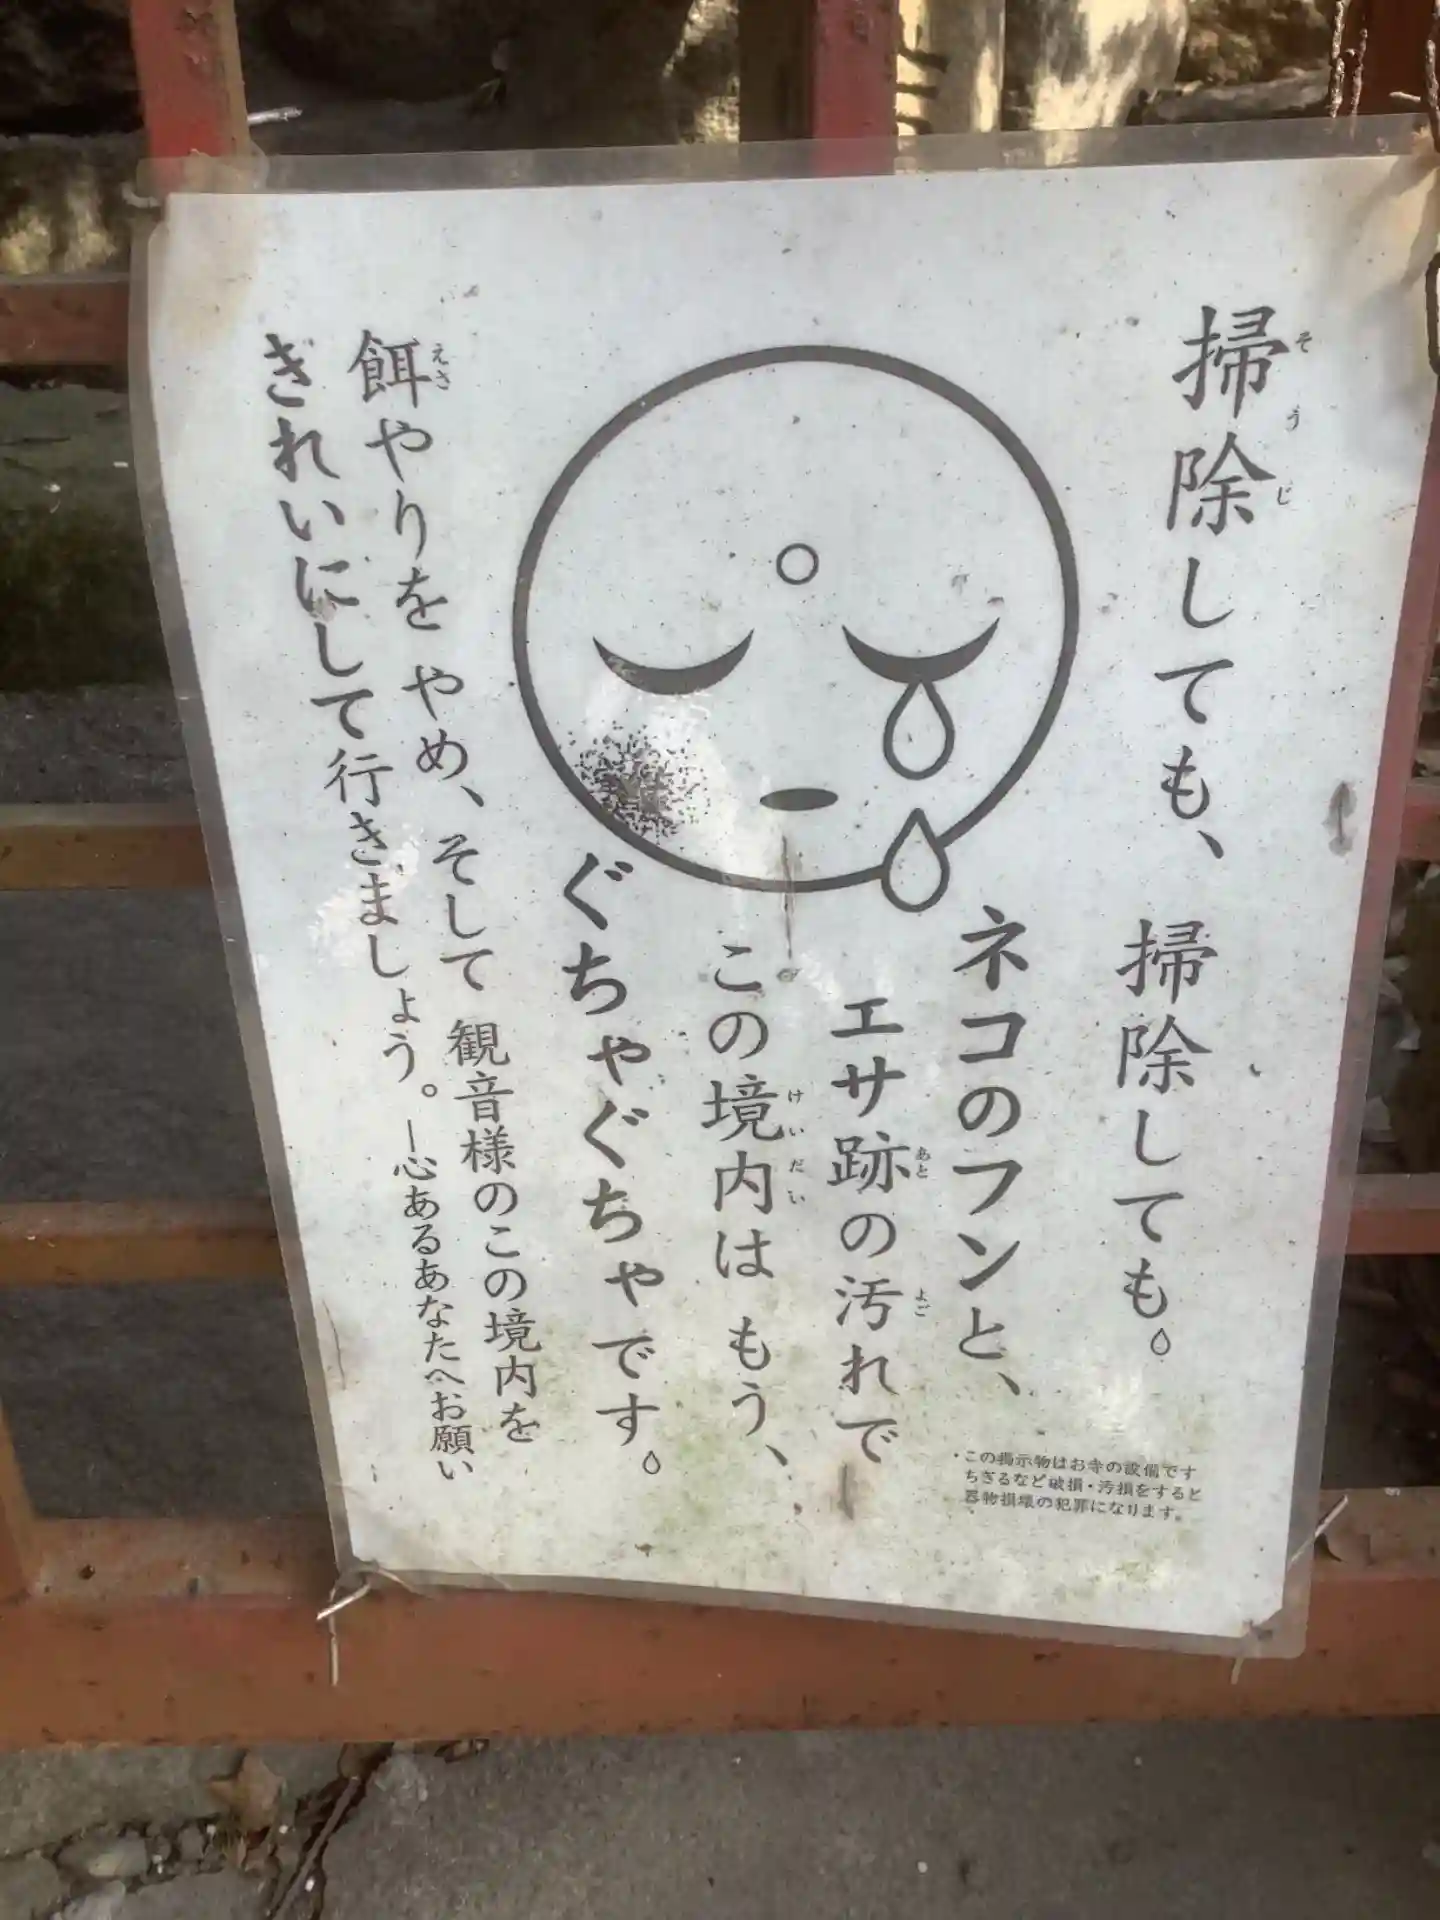 掃除しても、掃除しても。
ネコのフンと、
エサ跡の汚れで
この境内は もう、
ぐちゃぐちゃです。
餌やりを やめ、そして 観音様のこの境内を
きれいにして行きましょう。 ―心あるあなたへお願い
・この掲示物はお寺の設備です
ちぎるなど破損・汚損をすると
器物損壊の犯罪になります。
そうじ
あと
よご
けいだい
えさ